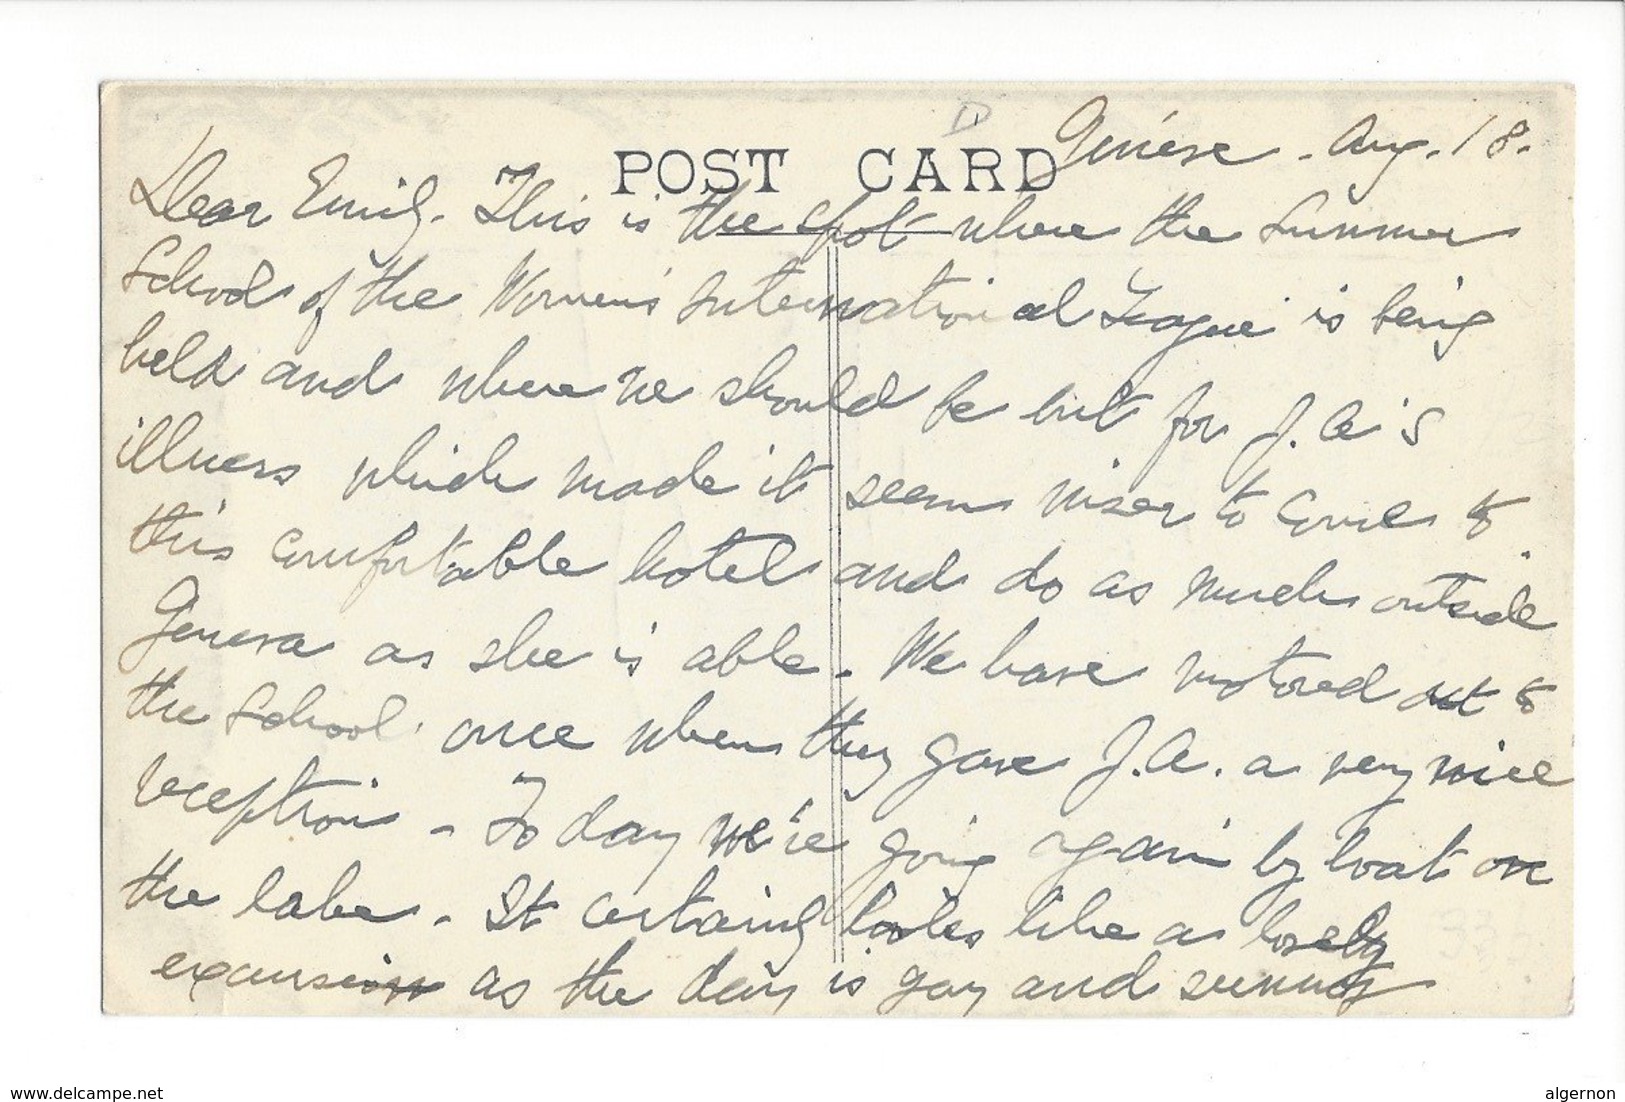 POST CARD
Genève - Aug. 18.
Dear Emily. This is the spot where the Summer
School of the Women's International League is being
held and where we should be but for J. A.'s
illness which made it seem wiser to come to
this comfortable hotel and do as much outside
Geneva as she is able - We have motored out to
the School once when they gave J. A. a very nice
reception - To day we're going again by boat on
the lake - It certainly looks like a lovely
excursion as the day is gay and sunny
www.delcampe.net
algernon